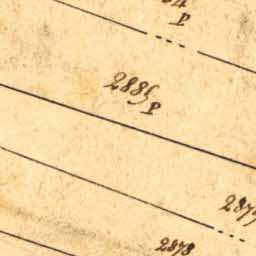 P
2885
P
287
2878